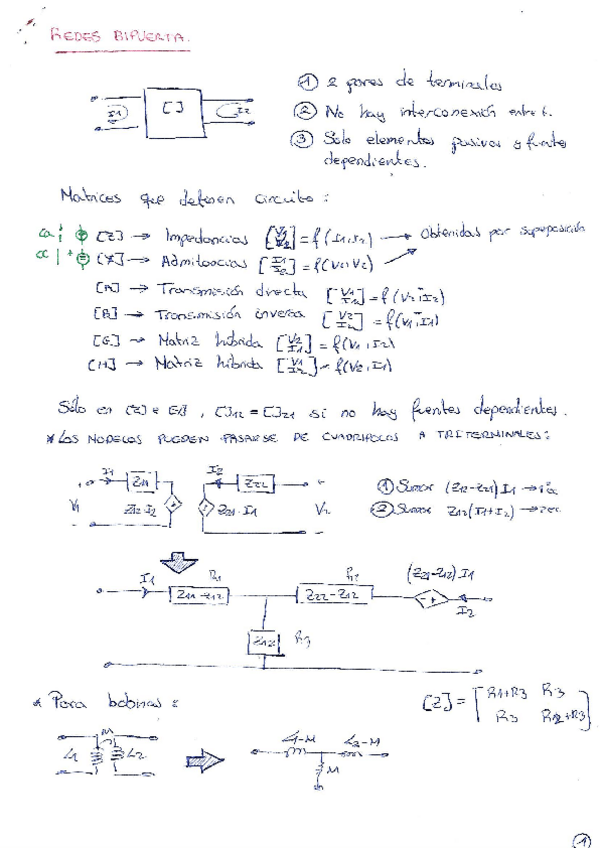 REDES BIPUERTA.
I1 [ ] I2
① 2 pares de terminales
② No hay interconexión entre t.
③ Sólo elementos pasivos y fuentes dependientes.
Matrices que definen circuito:
ca [Z] → Impedancias [V1 V2] = f(I1, I2) → Obtenidas por superposición
cc [Y] → Admitancias [I1 I2] = f(V1, V2)
[A] → Transmisión directa [V1 I1] = f(V2, I2)
[B] → Transmisión inversa [V2 I2] = f(V1, I1)
[G] → Matriz híbrida [V2 I1] = f(V1, I2)
[H] → Matriz híbrida [V1 I2] = f(V2, I1)
Sólo en [Z] e [Y], [ ]12 = [ ]21 si no hay fuentes dependientes.
* LOS MODELOS PUEDEN PASARSE DE CUADRIPOLOS A TRITERMINALES:
I1 Z11 I2 Z22
V1 Z12·I2 Z21·I1 V2
① Sumar (Z12-Z21)I1
② Sumar Z12(I1+I2)
I1 R1 R2 (Z21-Z12)I1
Z11-Z12 Z22-Z12 - + I2
Z12 R3
* Para bobinas:
[Z] = [R1+R3 R3
R3 R2+R3]
M L1-M L2-M
L1 L2 M
1